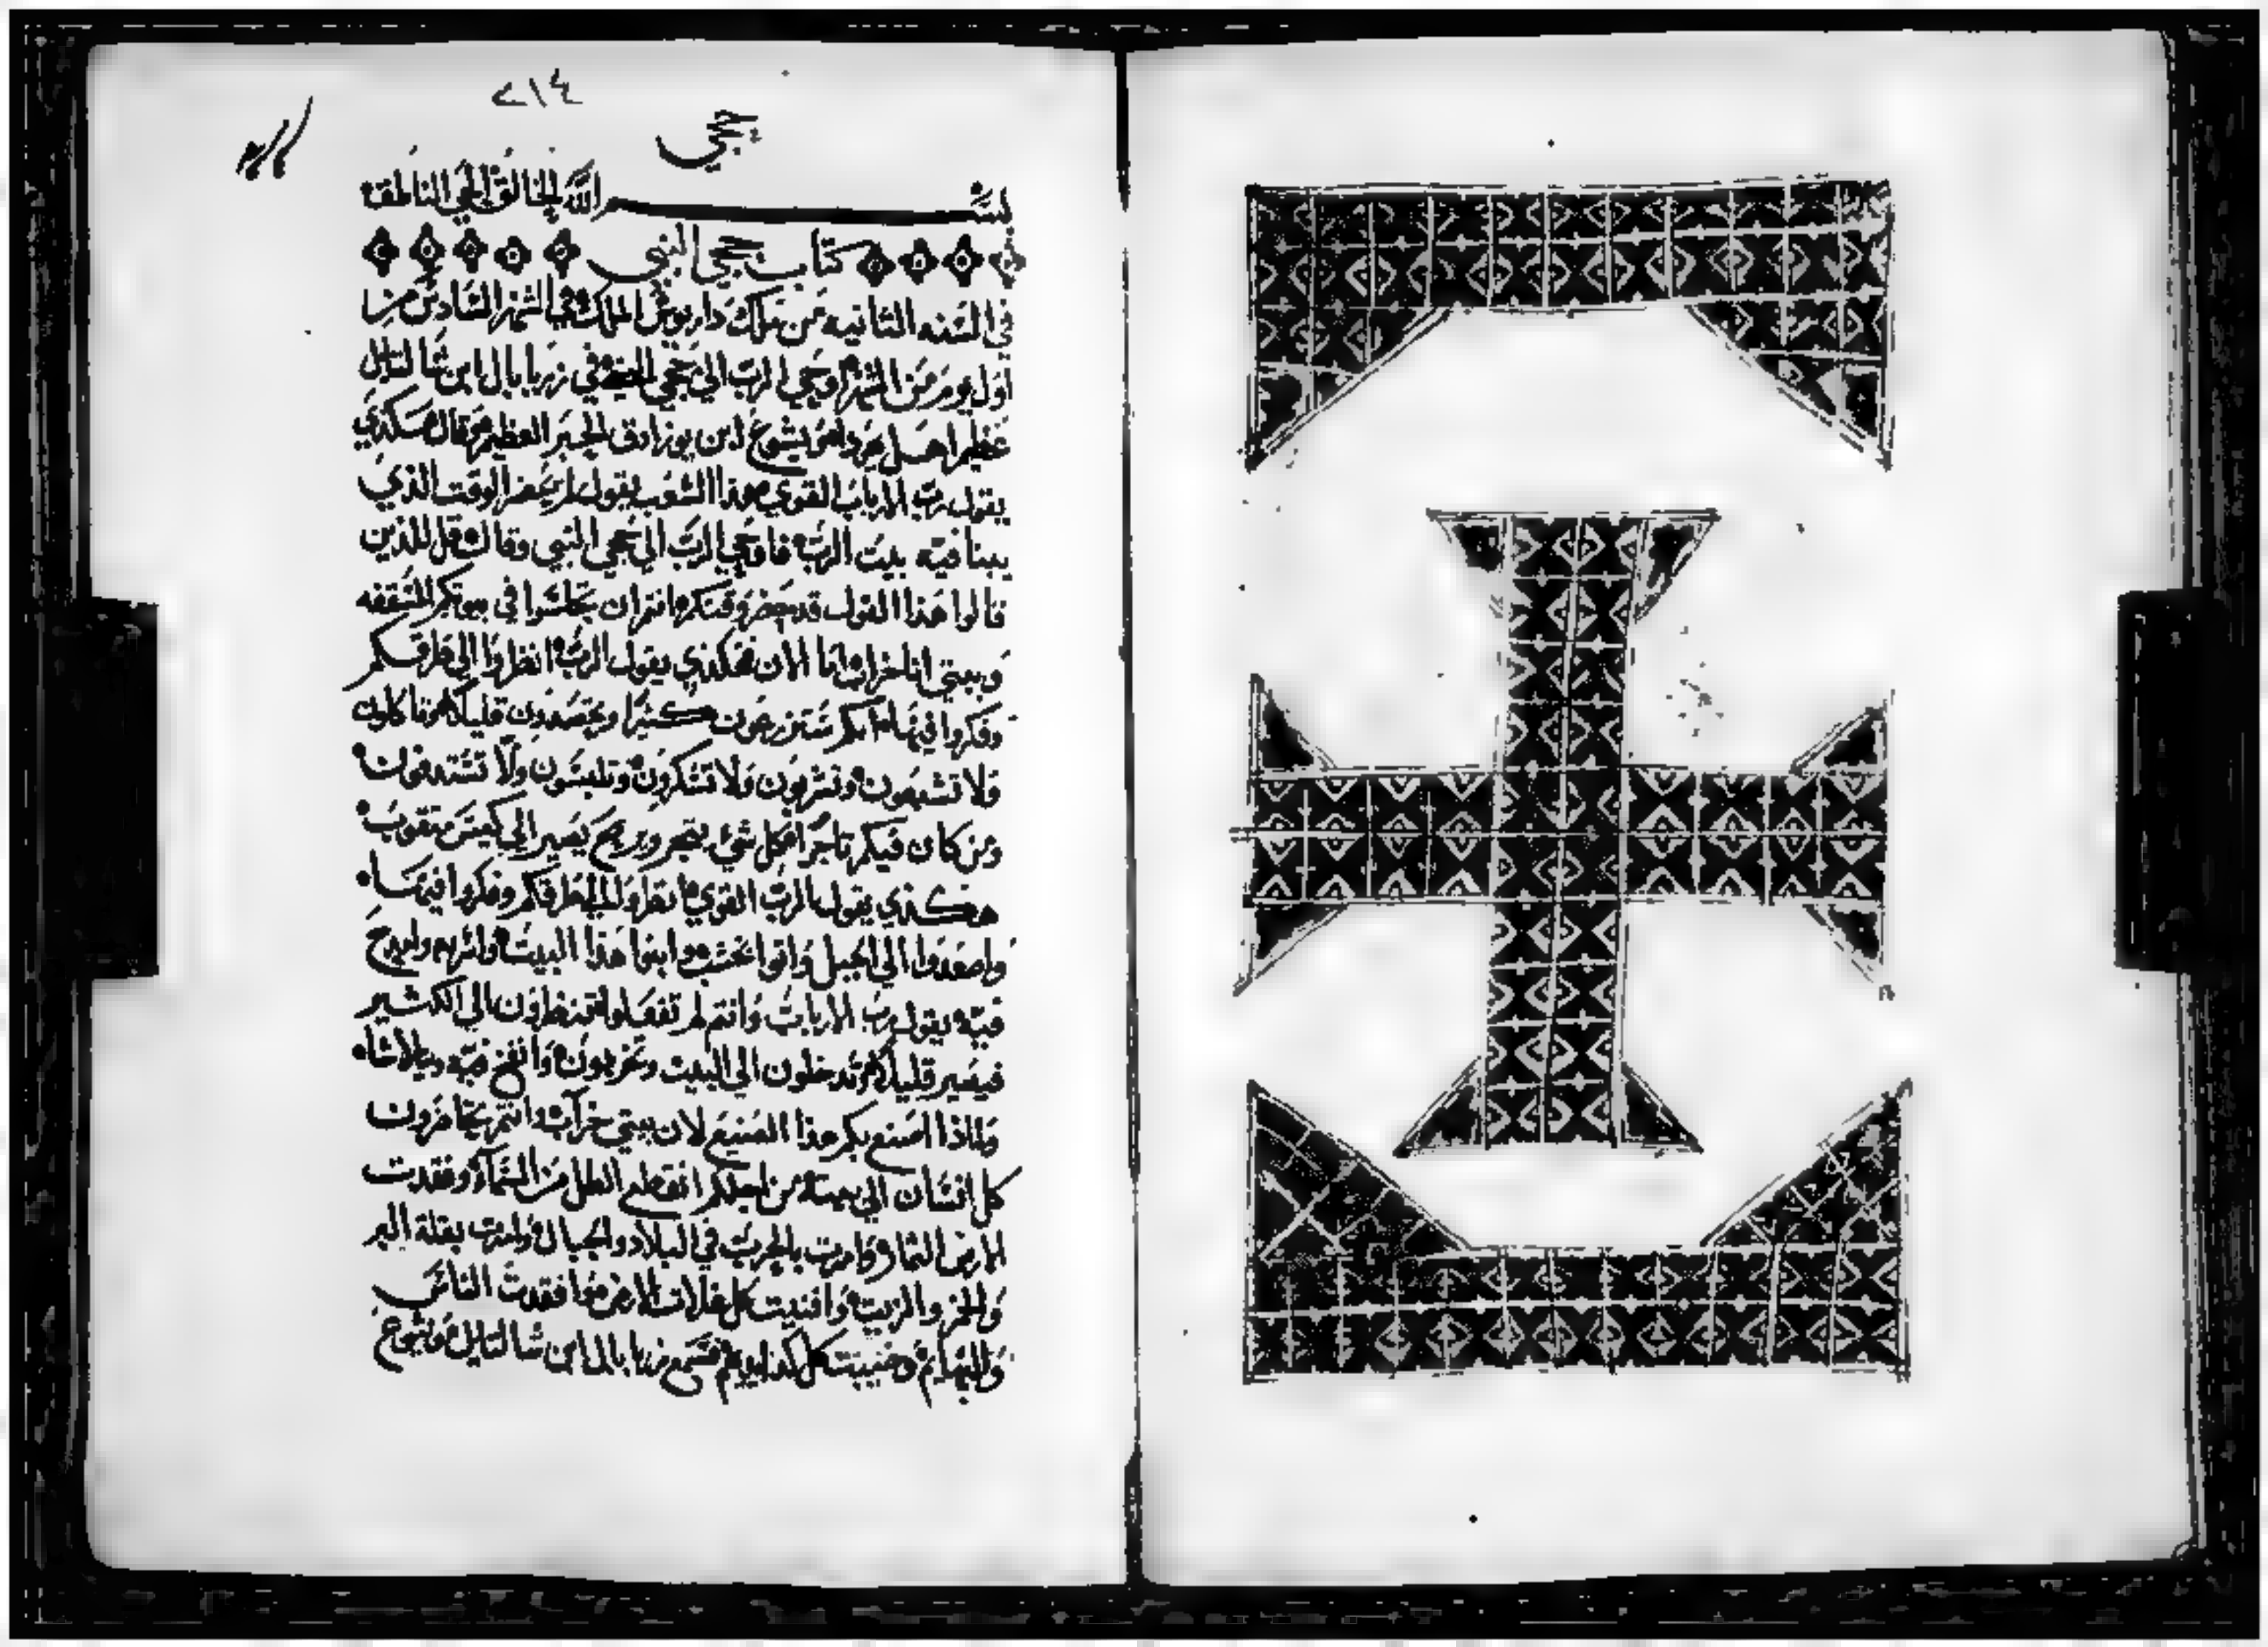 ٢١٤
حجي
بسم الله الخالق الحي الناطق
كتاب حجي النبي
في السنه الثانيه من ملك داريوش الملك في الشهر السادس من
اول يوم من الشهر اوحي الرب الي حجي في زربابال ابن شالتايل
عظيم اهل يهودا ويشوع ابن يوزادق الحبر العظيم وقال هكذي
يقول رب الارباب القوي هذا الشعب يقول لم يحضر الوقت الذي
يبنا فيه بيت الرب فاوحي الرب الي حجي النبي وقال قل للذين
قالوا هذا القول قد حضر وقتكم انتم ان تجلسوا في بيوتكم المسقفه
وبيتي انا خراب اما الان هكذي يقول الرب انظروا الي طرقكم
وفكروا فيها انكم ستزرعون كثيرا وتحصدون قليلا وتاكلون
ولا تشبعون وتشربون ولا تسكرون وتلبسون ولا تستدفون
ومن كان فيكم تاجرا فكل شي يتجر ويربح يصير الي كيس مثقوب
هكذي يقول الرب القوي انظروا الي طرقكم وفكروا فيها
واصعدوا الي الجبل واتوا بخشب وابنوا هذا البيت وامتدح
فيه يقول رب الارباب وانتم لم تفعلوا تنظرون الي الكثير
فيصير قليلا وتدخلون الي البيت وتخربون وانفخ فيه ويتلاشا
ولماذا اصنع بكم هذا الصنيع لان بيتي خراب وانتم تحاضرون
كل انسان الي بيته من اجلكم انقطع الطل من السماء وفقدت
الارض الثمار وامرت بالحرب في البلاد والجبال وامرت بقلة البر
والخمر والزيت وافنيت كل غلات الارض وافقدت الناس
والبهايم وخيبت كل كد ايديهم فسمع زربابال ابن شالتايل ويشوع